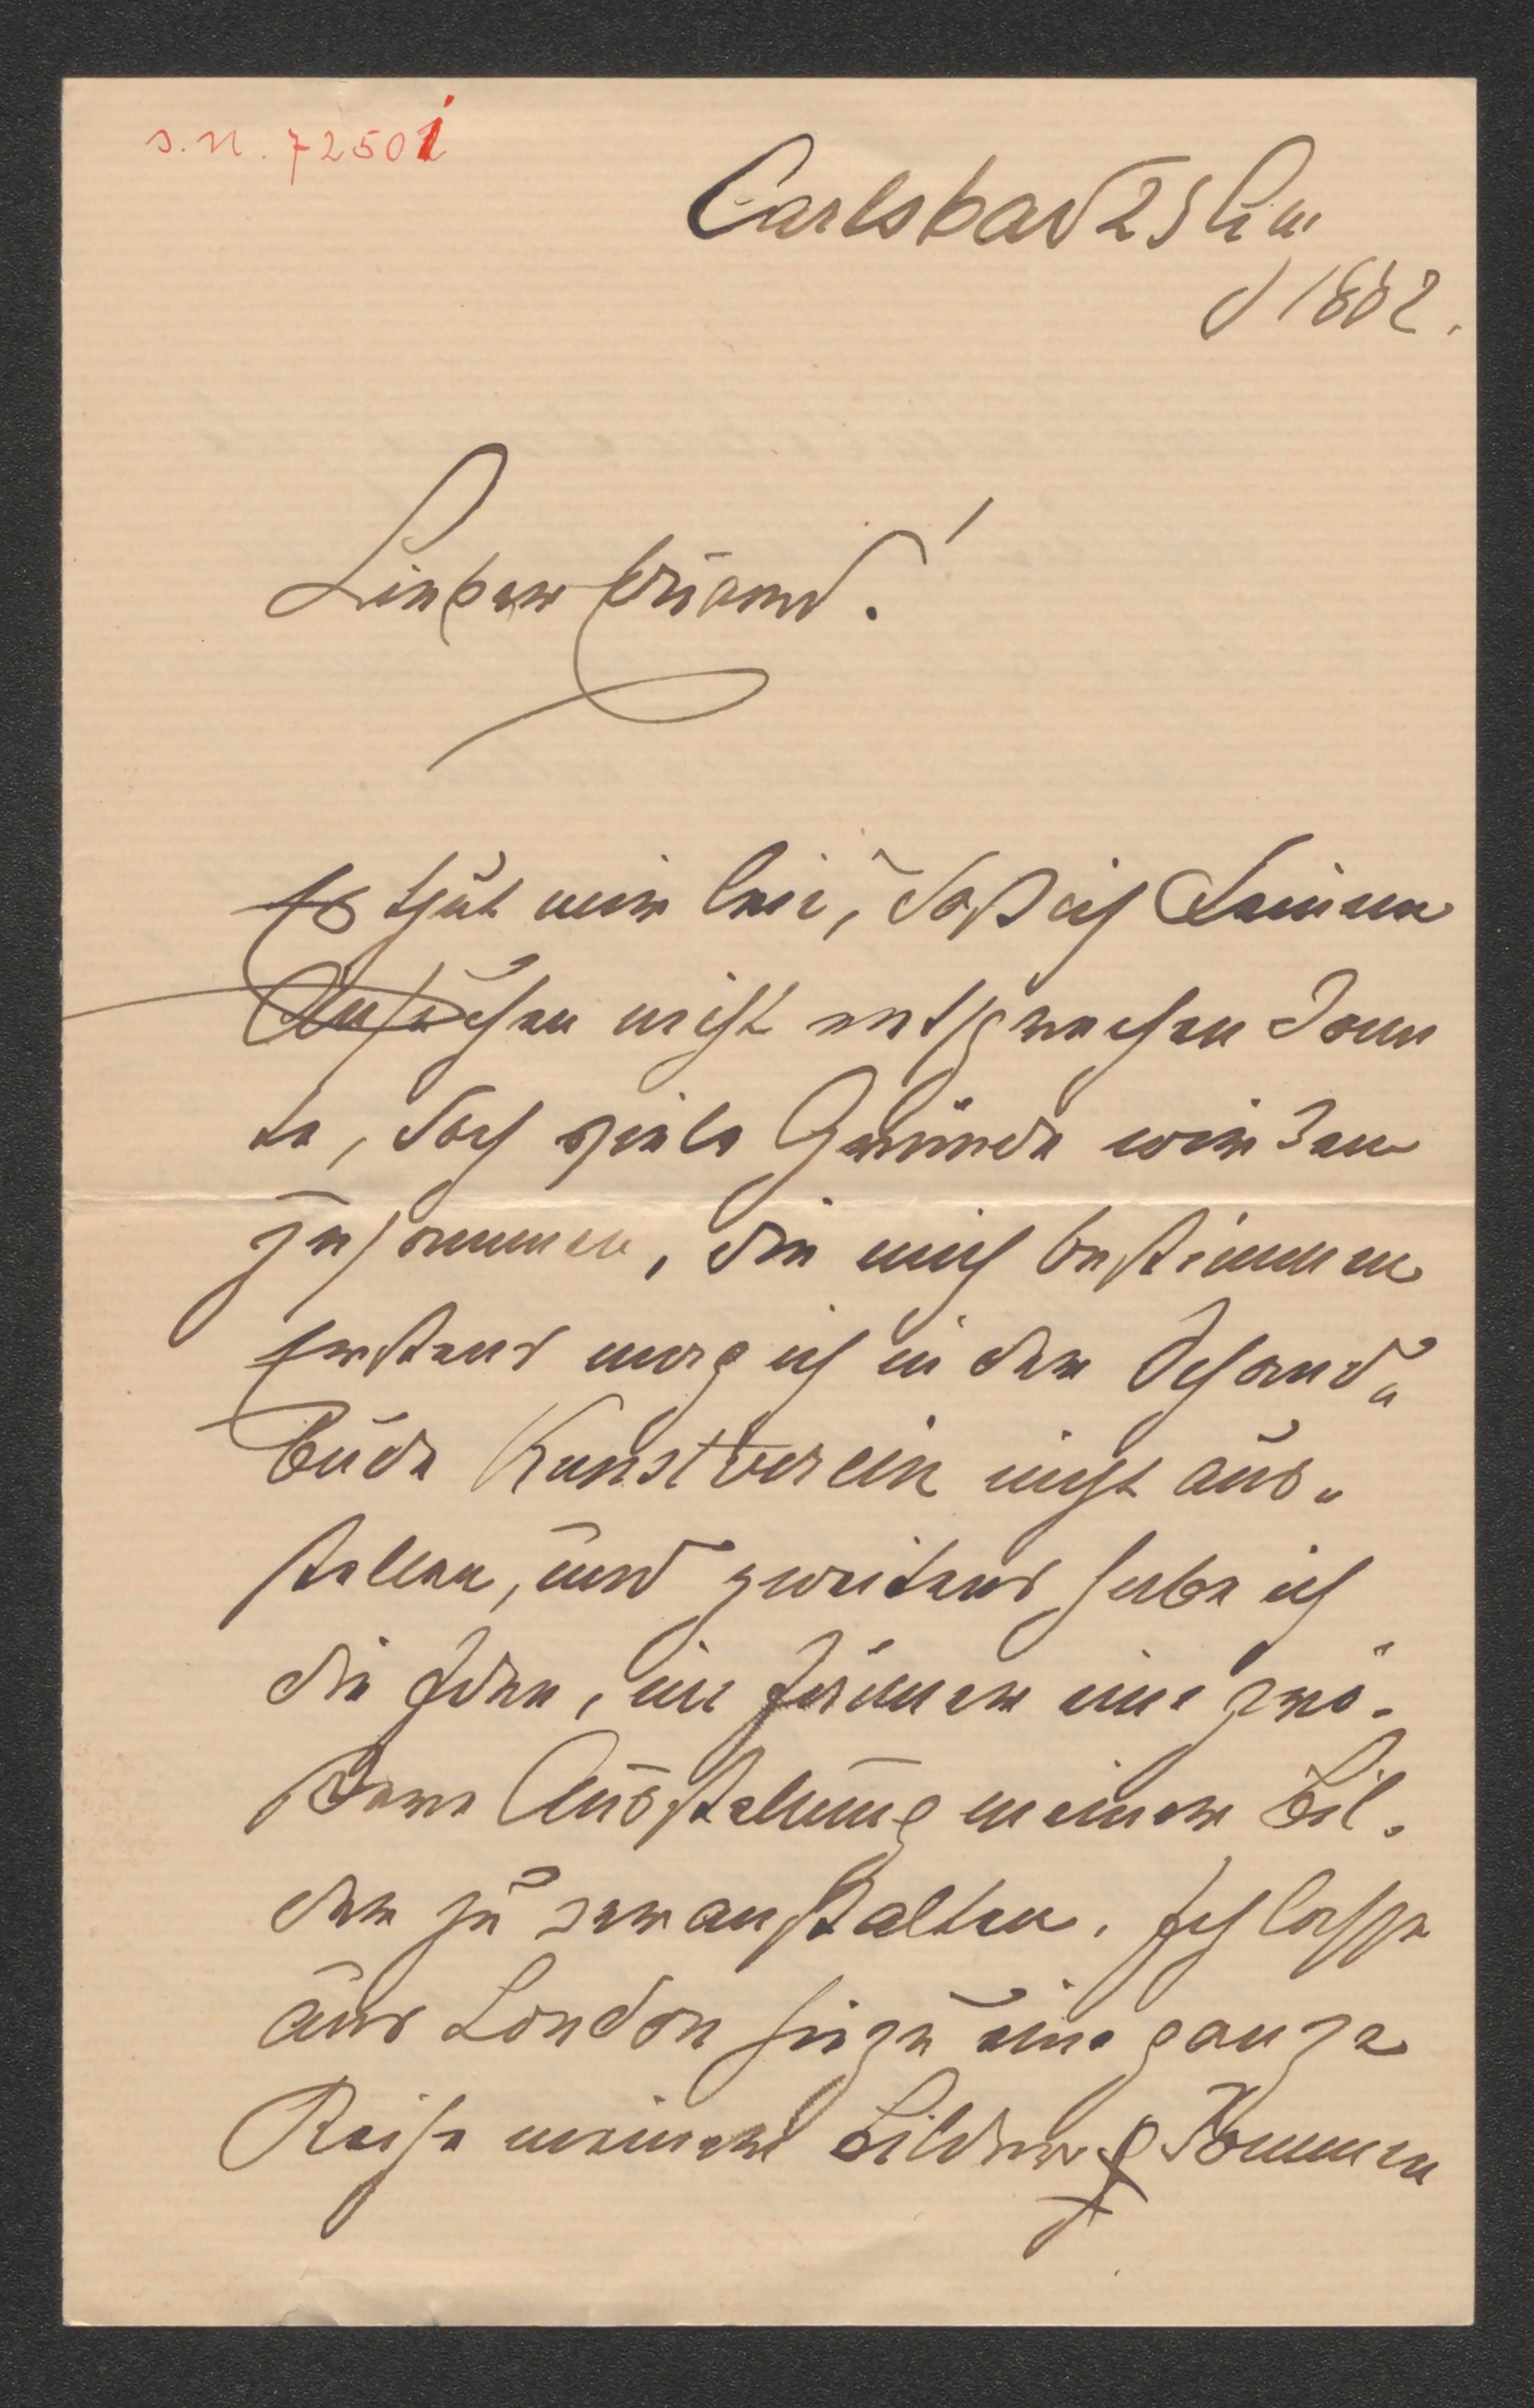 I.N. 72501
Carlsbad 25
d 1882.
Lieber Freund!
Es thut mir leid, daß ich Deinem
Ansuchen nicht entsprechen konn
te, doch viele Gründe wirken
zusammen, die mich bestimmen
Erstens mag ich in der Schand„
bude Kunstverein nicht aus„
stellen, und zweitens habe ich
die Idee, im Jänner eine grö-
ßere Ausstellung meiner Bil-
der zu veranstalten. Ich lasse
aus London hiezu eine ganze
Reihe meiner Bilder kommen